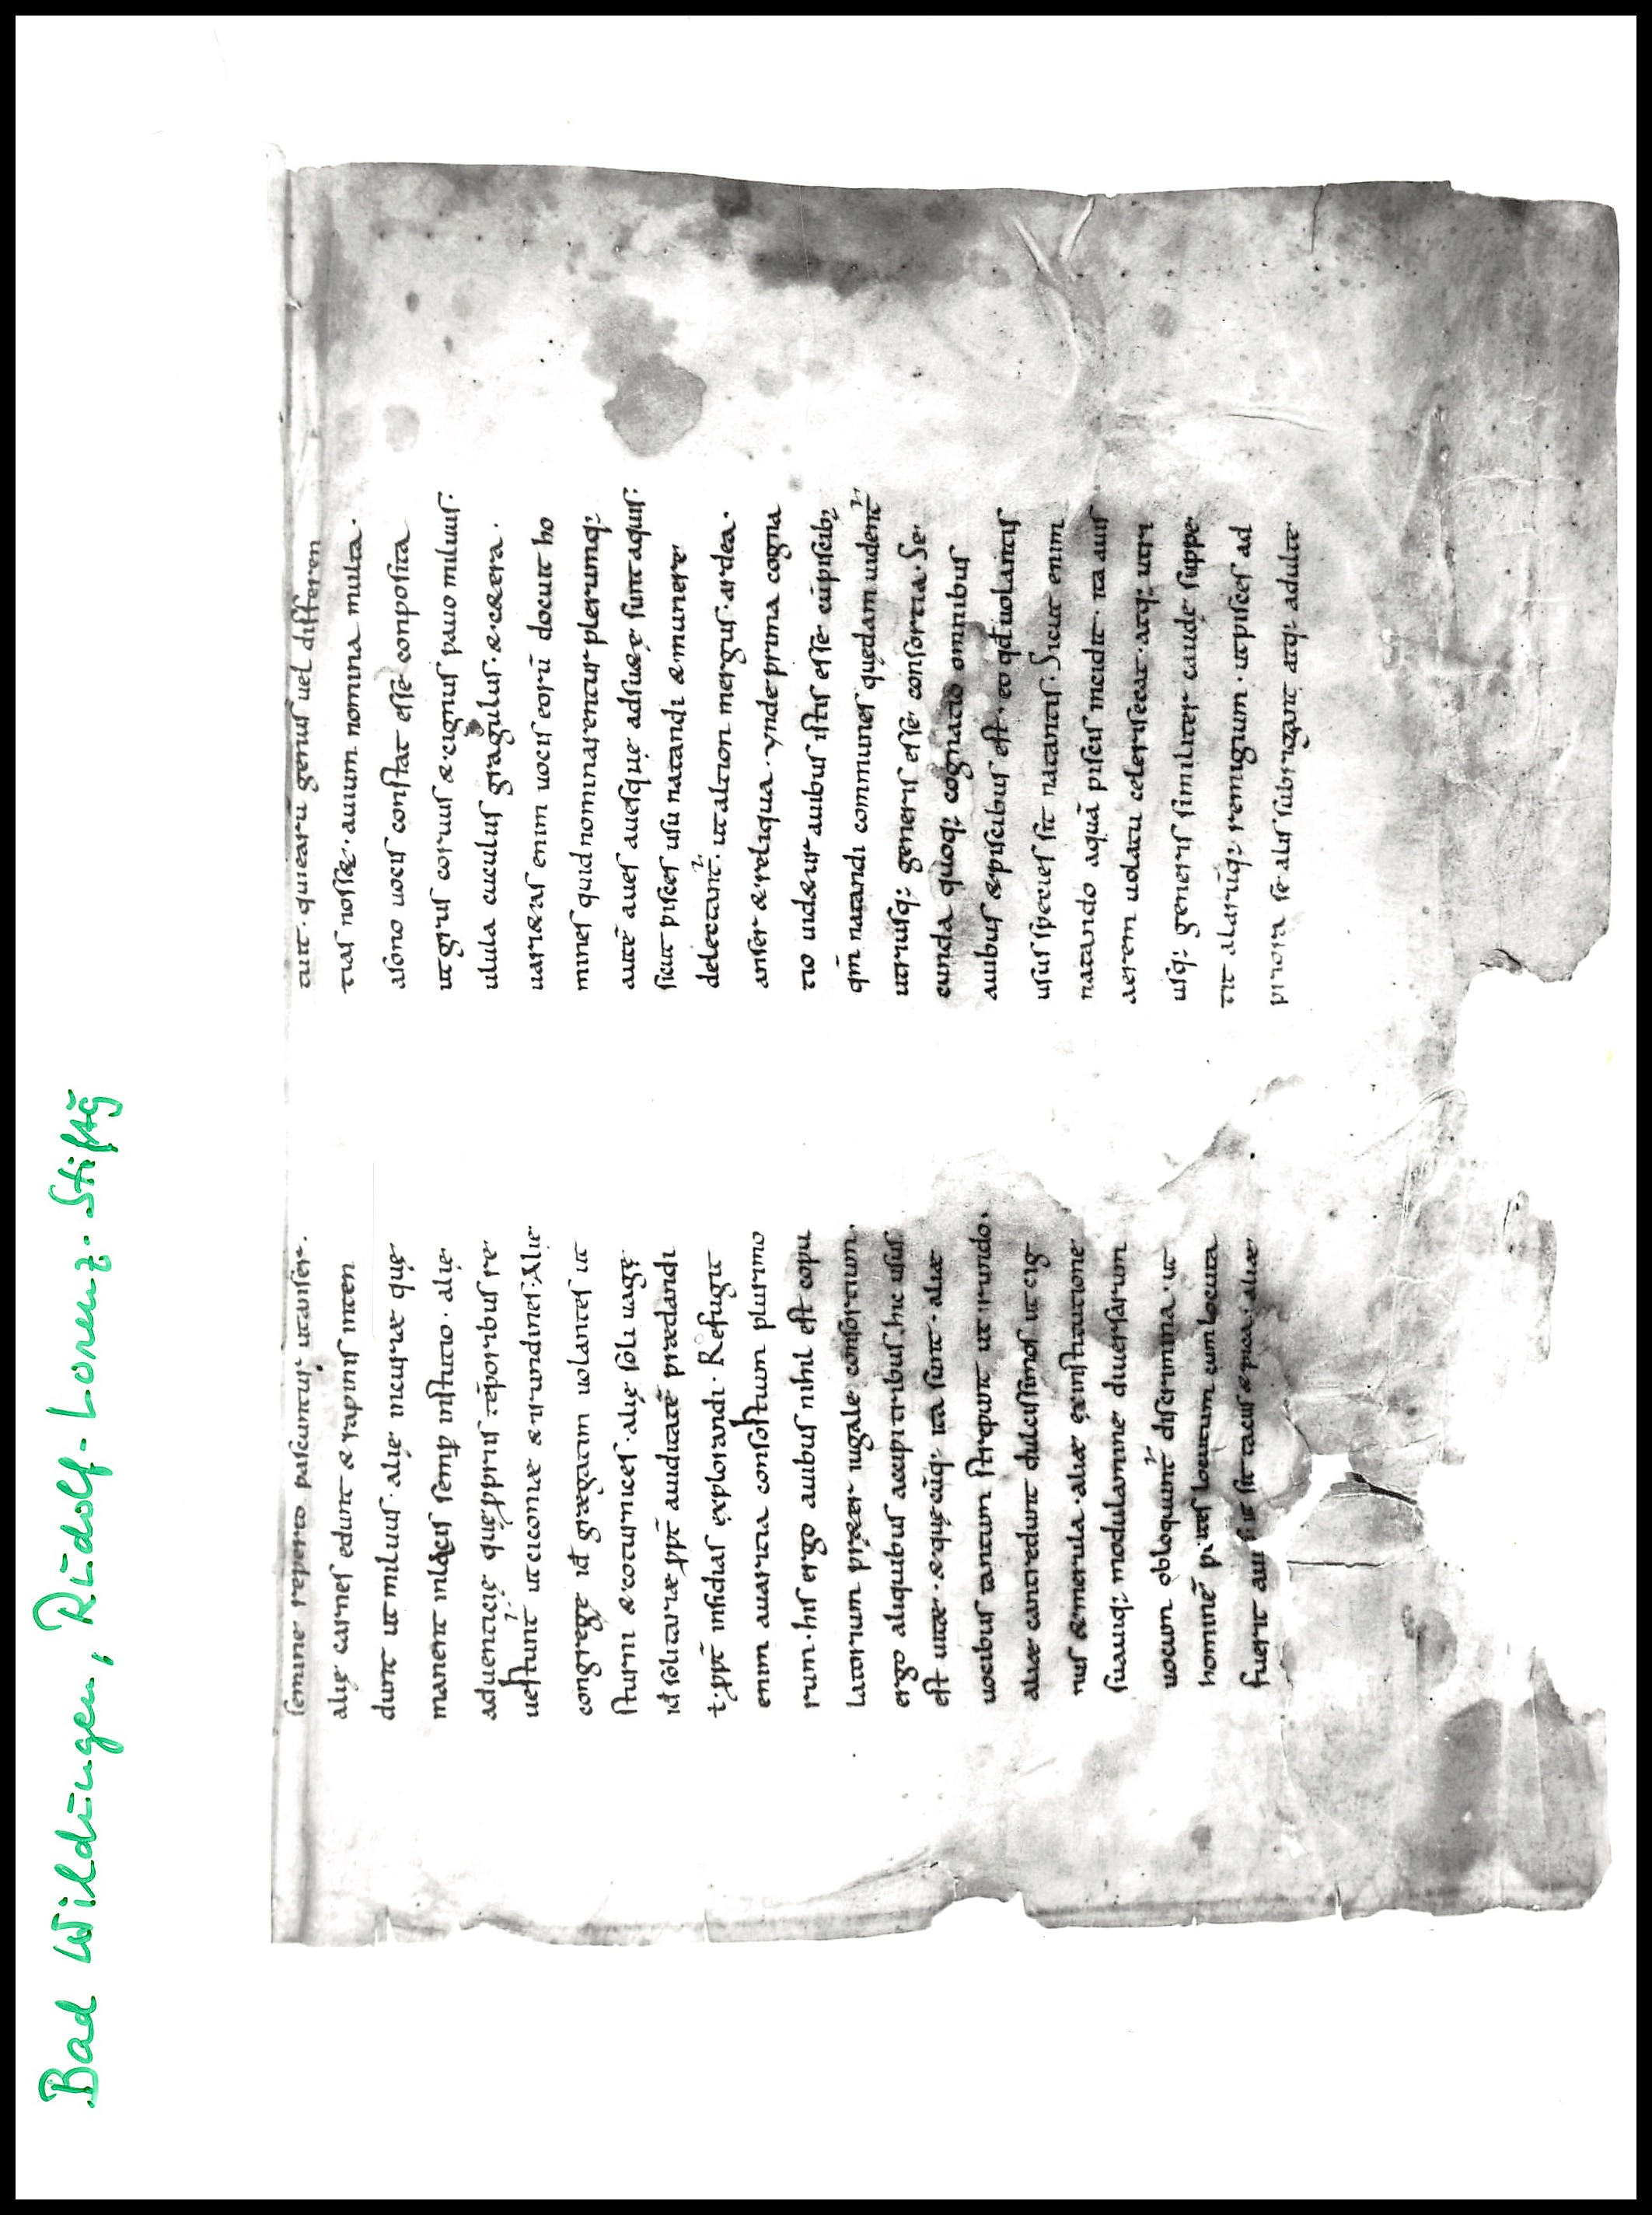 Bad Wildungen, Rudolf-Lorenz-Stiftg
semine reperto pascuntur utanser.
alię carnes edunt & rapinis inten
dunt ut miluus· alię incuriæ quę
manent inlocus semꝑ institutio· alię
aduenticię quęꝓpriis tēporibus re
uestunt᷑ utciconiæ & irundines· Alię
congregę id ÷ grægatim uolantes ut
sturni & coturnices· alię soliuagę
id ÷ solitariæ ꝓpt̄ auiditatē prædandi
t·ꝓpt̄ insidias explorandi· Refugit
enim auaritia consostium plurimo
rum· his ergo auibus nihil est copu
latorium præter iugale consortium·
ergo aliquibus accipitribus hic usus
est uitæ· & quęcūq; ita sunt· aliæ
uocibus tantum strepunt ut irundo·
aliæ cantredunt dulcissimos ut cig
nus & merula· aliæ exinstitutione
suauiq; modulamine diuersarum
uocum obloquunt᷑ discrimina· ut
hominē putes locutum cum locuta
fuerit auis ut sit tacus & pica· aliæ
tuit· quiearū genus uel differen
tias nosse· auium nomina multa·
asono uocis constat esse conposita
utgrus coruus & cignus pauo miluus:
ulula cuculus gragulus· & cætera·
uarietas enim uocis eorū docuit ho
mines quid nominarentur plerumq;
autē aues auesque adsuetę sunt aquis:
sicut pisces usu natandi & munere
delectant᷑· ut altion mergus· ardea·
anser & reliqua· ynde prima cogna
tio uidetur auibus istis esse cūpiscib;
qm̄ natandi communes quędam uident᷑
utriusq; generis esse consortia· Se
cunda quoq; cognatio omnibus
auibus & piscibus est, eo qd̄ uolantis
usus species sit natantis: Sicut enim
natando aquā piscis incidit· ita auis
aerem uolatu celeri secat· atq; utri
usq; generis similiter caudę suppe
tit alarūq; remigium· utpisces ad
priora se alis subrigant atq; adulte